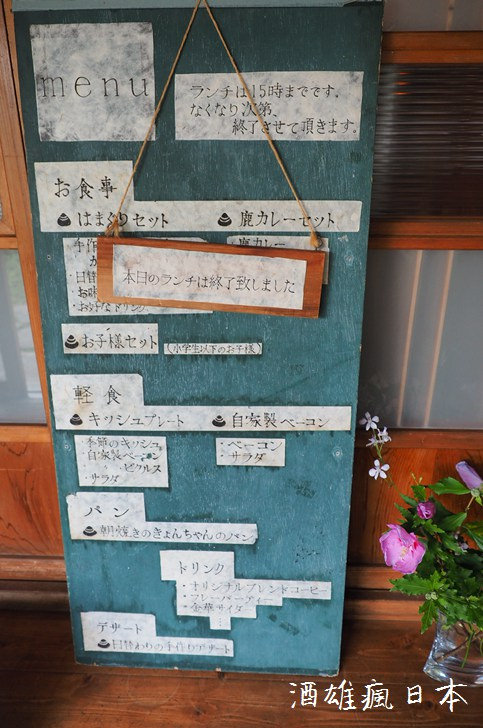 menu
ランチは15時までです、
なくなり次第、
終了させて頂きます。
お食事
はまぐりセット
鹿カレーセット
手作
鹿カレー
本日のランチは終了致しました
・日替
お味
・お好きなドリンク
お子様セット
(小学生以下のお子様)
軽食
キッシュプレート
自家製ベーコン
季節のキッシュ
・自家製ベーコン
〃 ピクルス
・サラダ
・ベーコン
・サラダ
パン
朝焼きのきょんちゃんのパン
ドリンク
・オリジナルブレンドコーヒー
・フレーバーティー
・金華サイダー
デザート
日替わりの手作りデザート
酒雄瘋日本